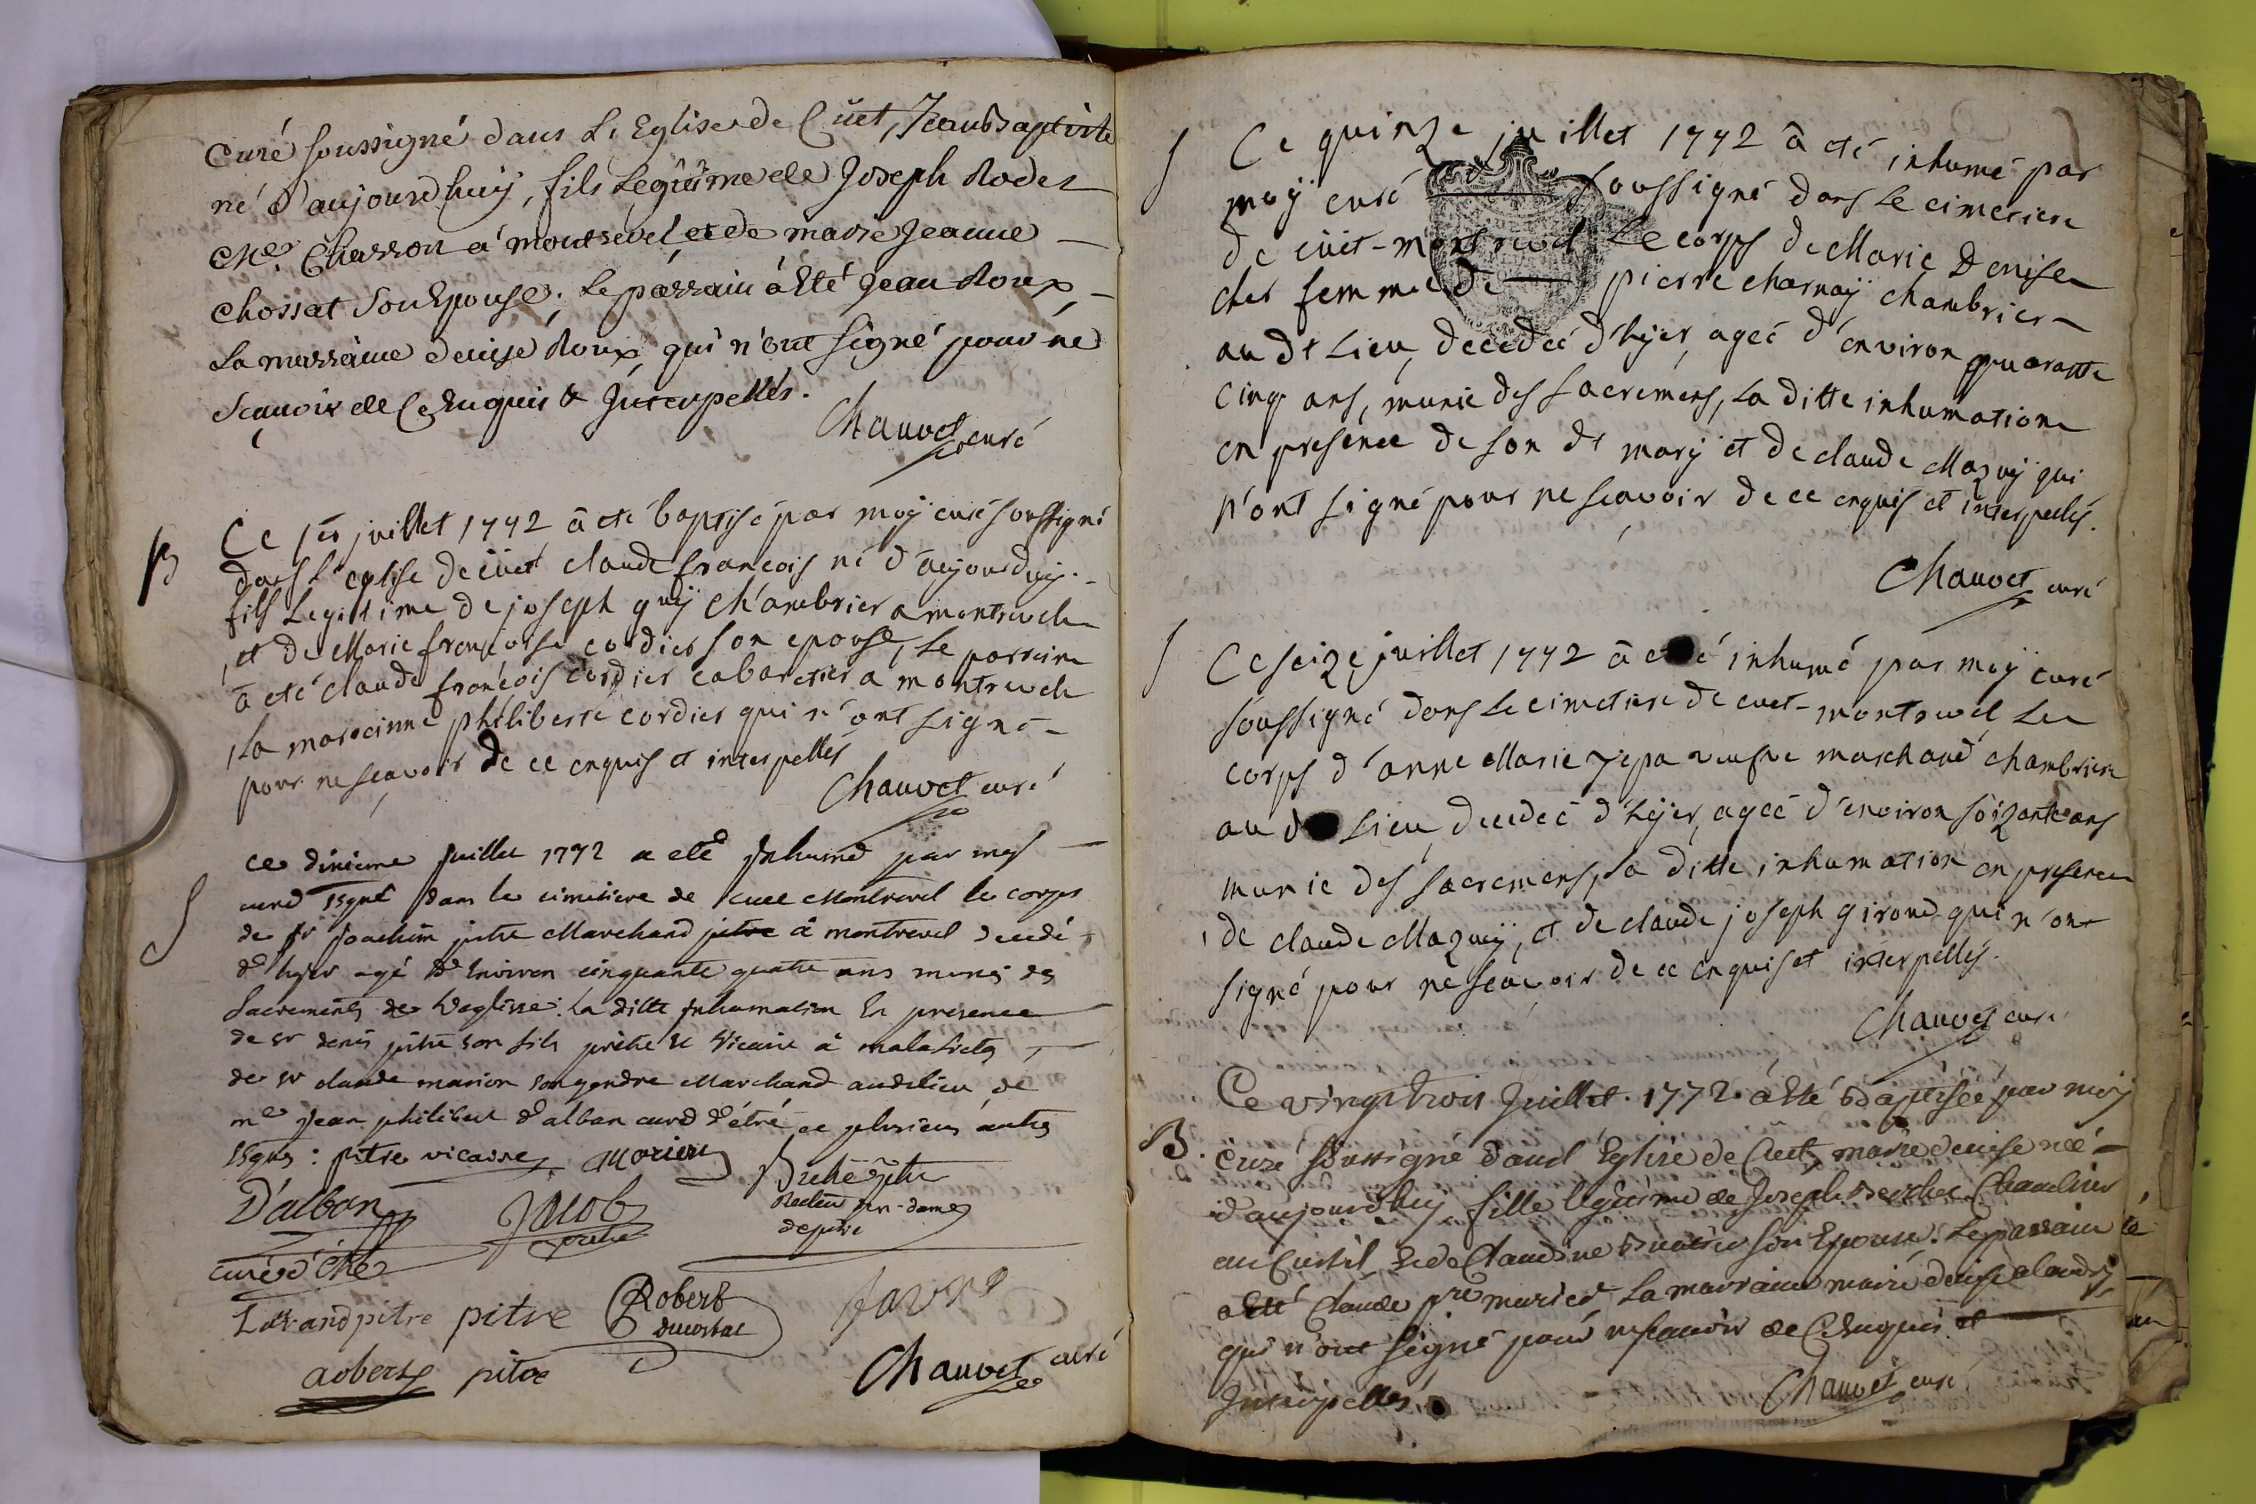 Curé soussigné dans L'Eglise de Cüet, Jean Baptiste
né d'aujourdhuÿ, fils Legitime de Joseph Rodet
Chasson a montrevel, et de marie Jeanne
Chossat Son Epouse; Le parrain á Eté Jean Roux,
La marraine denise Roux qui n'ont signé pour ne
Sçauoir de Ce Enquis & Interpellés.
Chauvet curé
B
Ce 1er juillet 1772 a eté baptisé par moÿ curé soussigné
dans l'eglise de cüet claude francois né d'aujourduÿ.
fils Legitime de joseph guÿ chambrier a montrevel
et de Marie francoise cordier son epouse, Le parrain
a eté claude francois cordier cabaretier a montrevel
La marainne philiberte cordier qui n'ont signé
pour ne scavoir de ce enquis et interpellés
Chauvet curé
S
ce dixieme juillet 1772 a eté Inhumé par moy
curé ssgné dans le cimitiere de cuet Montrevel le corps
de sr joachim pitre Marchand pitre a montrevel decedé
d'hyer agé d'Environ cinquante quatre ans muni des
Sacrements de L'eglisse. La ditte Inhumation En presence
de sr denis pitre son fils prêtre et vicaire à malafretas
de sr claude morion son gendre Marchand audit lieu de
me jean philibert d'alban curé d'étré et plusieurs autres
ssgnes : pitre vicaire Morion
D'alban Jacob
prêtre
curé d'étré
pitre pitre Robert
ducortal favre
Robert pitre Chauvet curé
S
Ce quinze juillet 1772 a eté inhumé par
moÿ curé soussigné dans Le cimetiere
de cüet-montrevel Le corps de Marie Denise
cher femme de pierre charnaÿ chambrier
au dt Lieu, decedeé d'hÿer, ageé d'environ quarante
cinq ans, munie des sacremens, La ditte inhumation
en presence de son dt marÿ et de claude Mazuÿ qui
n'ont signé pour ne scavoir de ce enquis et interpellés.
Chauvet curé
S
Ce seize juillet 1772 a eté inhumé par moÿ curé
soussigné dans Le cimetiere de cuet-montrevel Le
corps d'anne Marie veufve marchand chambriere
au dt Lieu, decedeé d'hÿer, ageé d'environ soizante ans
munie des sacremens, La ditte inhumation en presence
de claude Mazuÿ, et de claude joseph girond qui n'ont
signé pour ne scavoir de ce enquis et interpellés.
Chauvet curé
B.
Ce vingt trois Juillet 1772 á Eté Baptisée par moÿ
Curé soussigné dans L'Eglise de Cuet, marie denise née
d'aujourdhuÿ fille legitime de Joseph
au Curtil et de Claudine son Epouse. Le parrain
a Eté Claude pre La marraine marie denise
qui n'ont signé pour ne scauoir de Ce Enquis et
Interpellés.
Chauvet curé